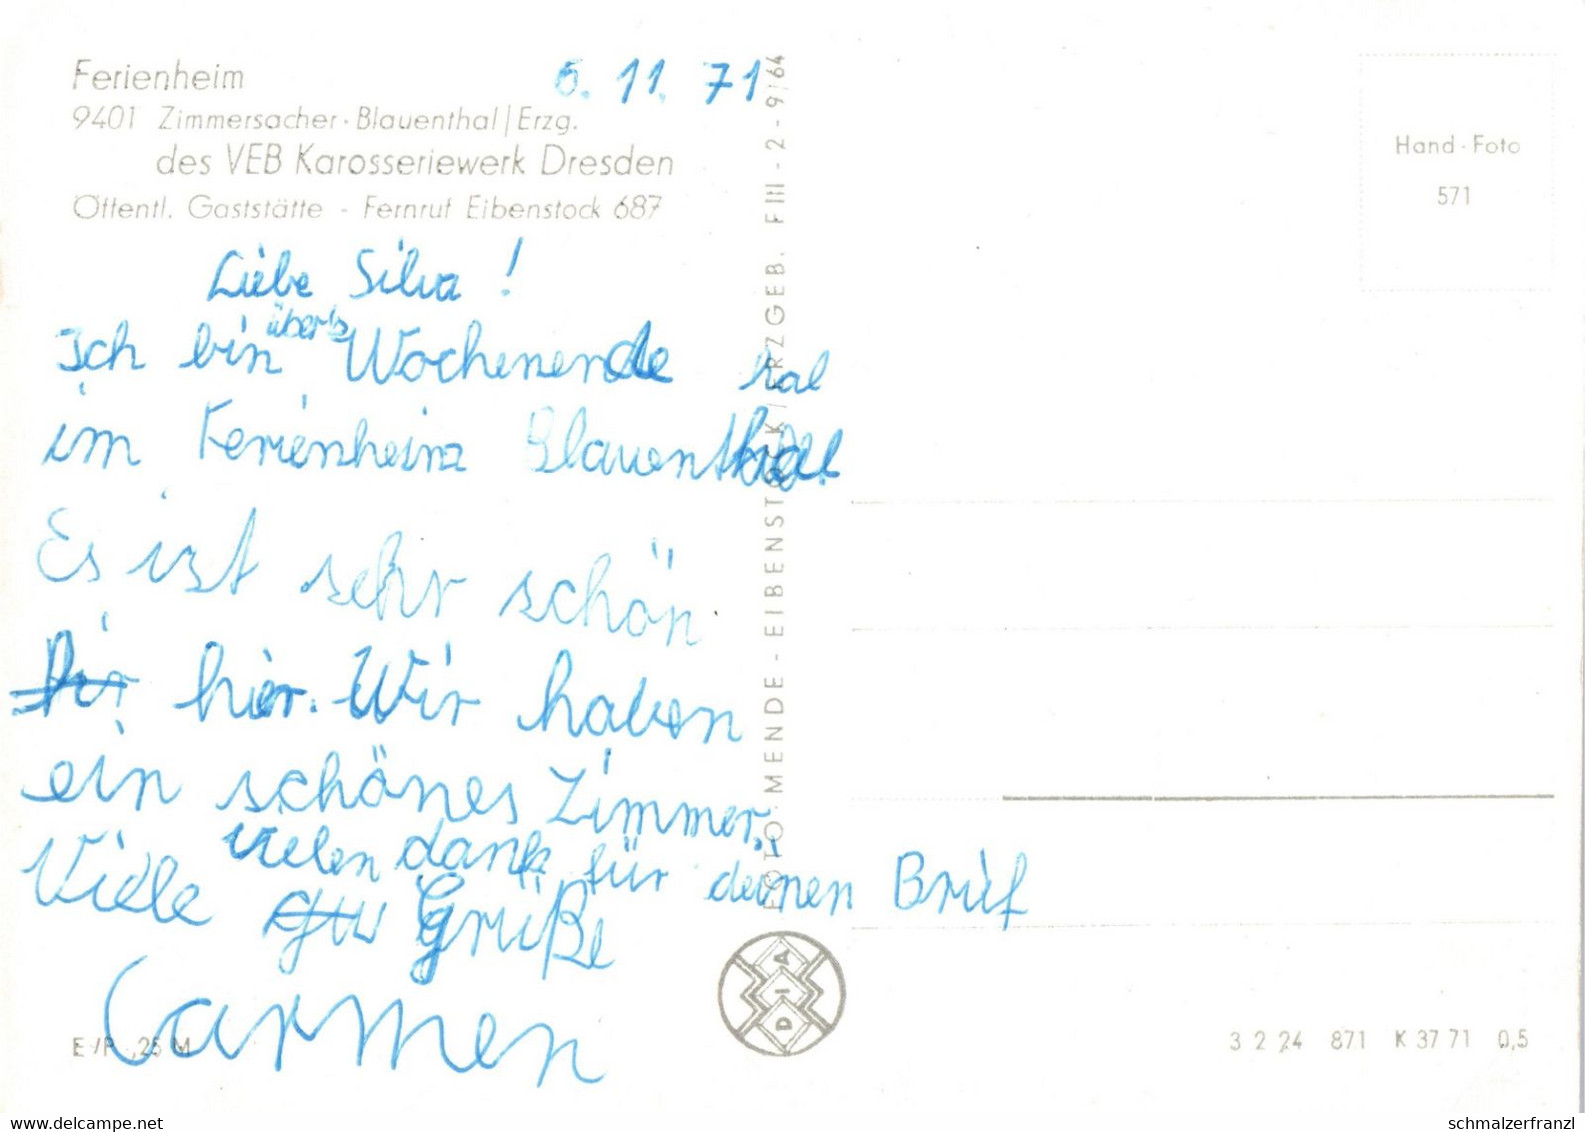 Ferienheim
9401 Zimmersacher · Blauenthal / Erzg.
des VEB Karosseriewerk Dresden
Öffentl. Gaststätte - Fernruf Eibenstock 687
6. 11. 71
Liebe Silva !
Ich bin über's Wochenende
im Ferienheim Blauenthal.
Es ist sehr schön
hier. Wir haben
ein schönes Zimmer.
vielen dank für deinen Brief
Viele Grüße
Carmen
EVP ,25 M
FOTO MENDE - EIBENSTOCK / ERZGEB. F III - 2 - 9/64
DIA
Hand-Foto
571
3 2 24 871 K 37 71 0,5
delcampe.net
schmalzerfranzl